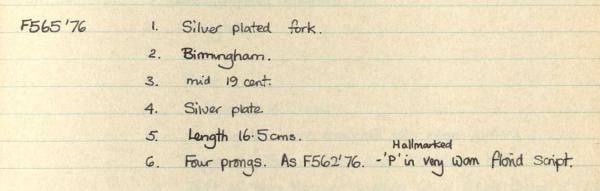 F565'76 1. Silver plated fork.
2. Birmingham.
3. mid 19 cent.
4. Silver plate
5. Length 16.5cms.
Hallmarked
6. Four prongs. As F562'76. -'P' in very worn florid script.